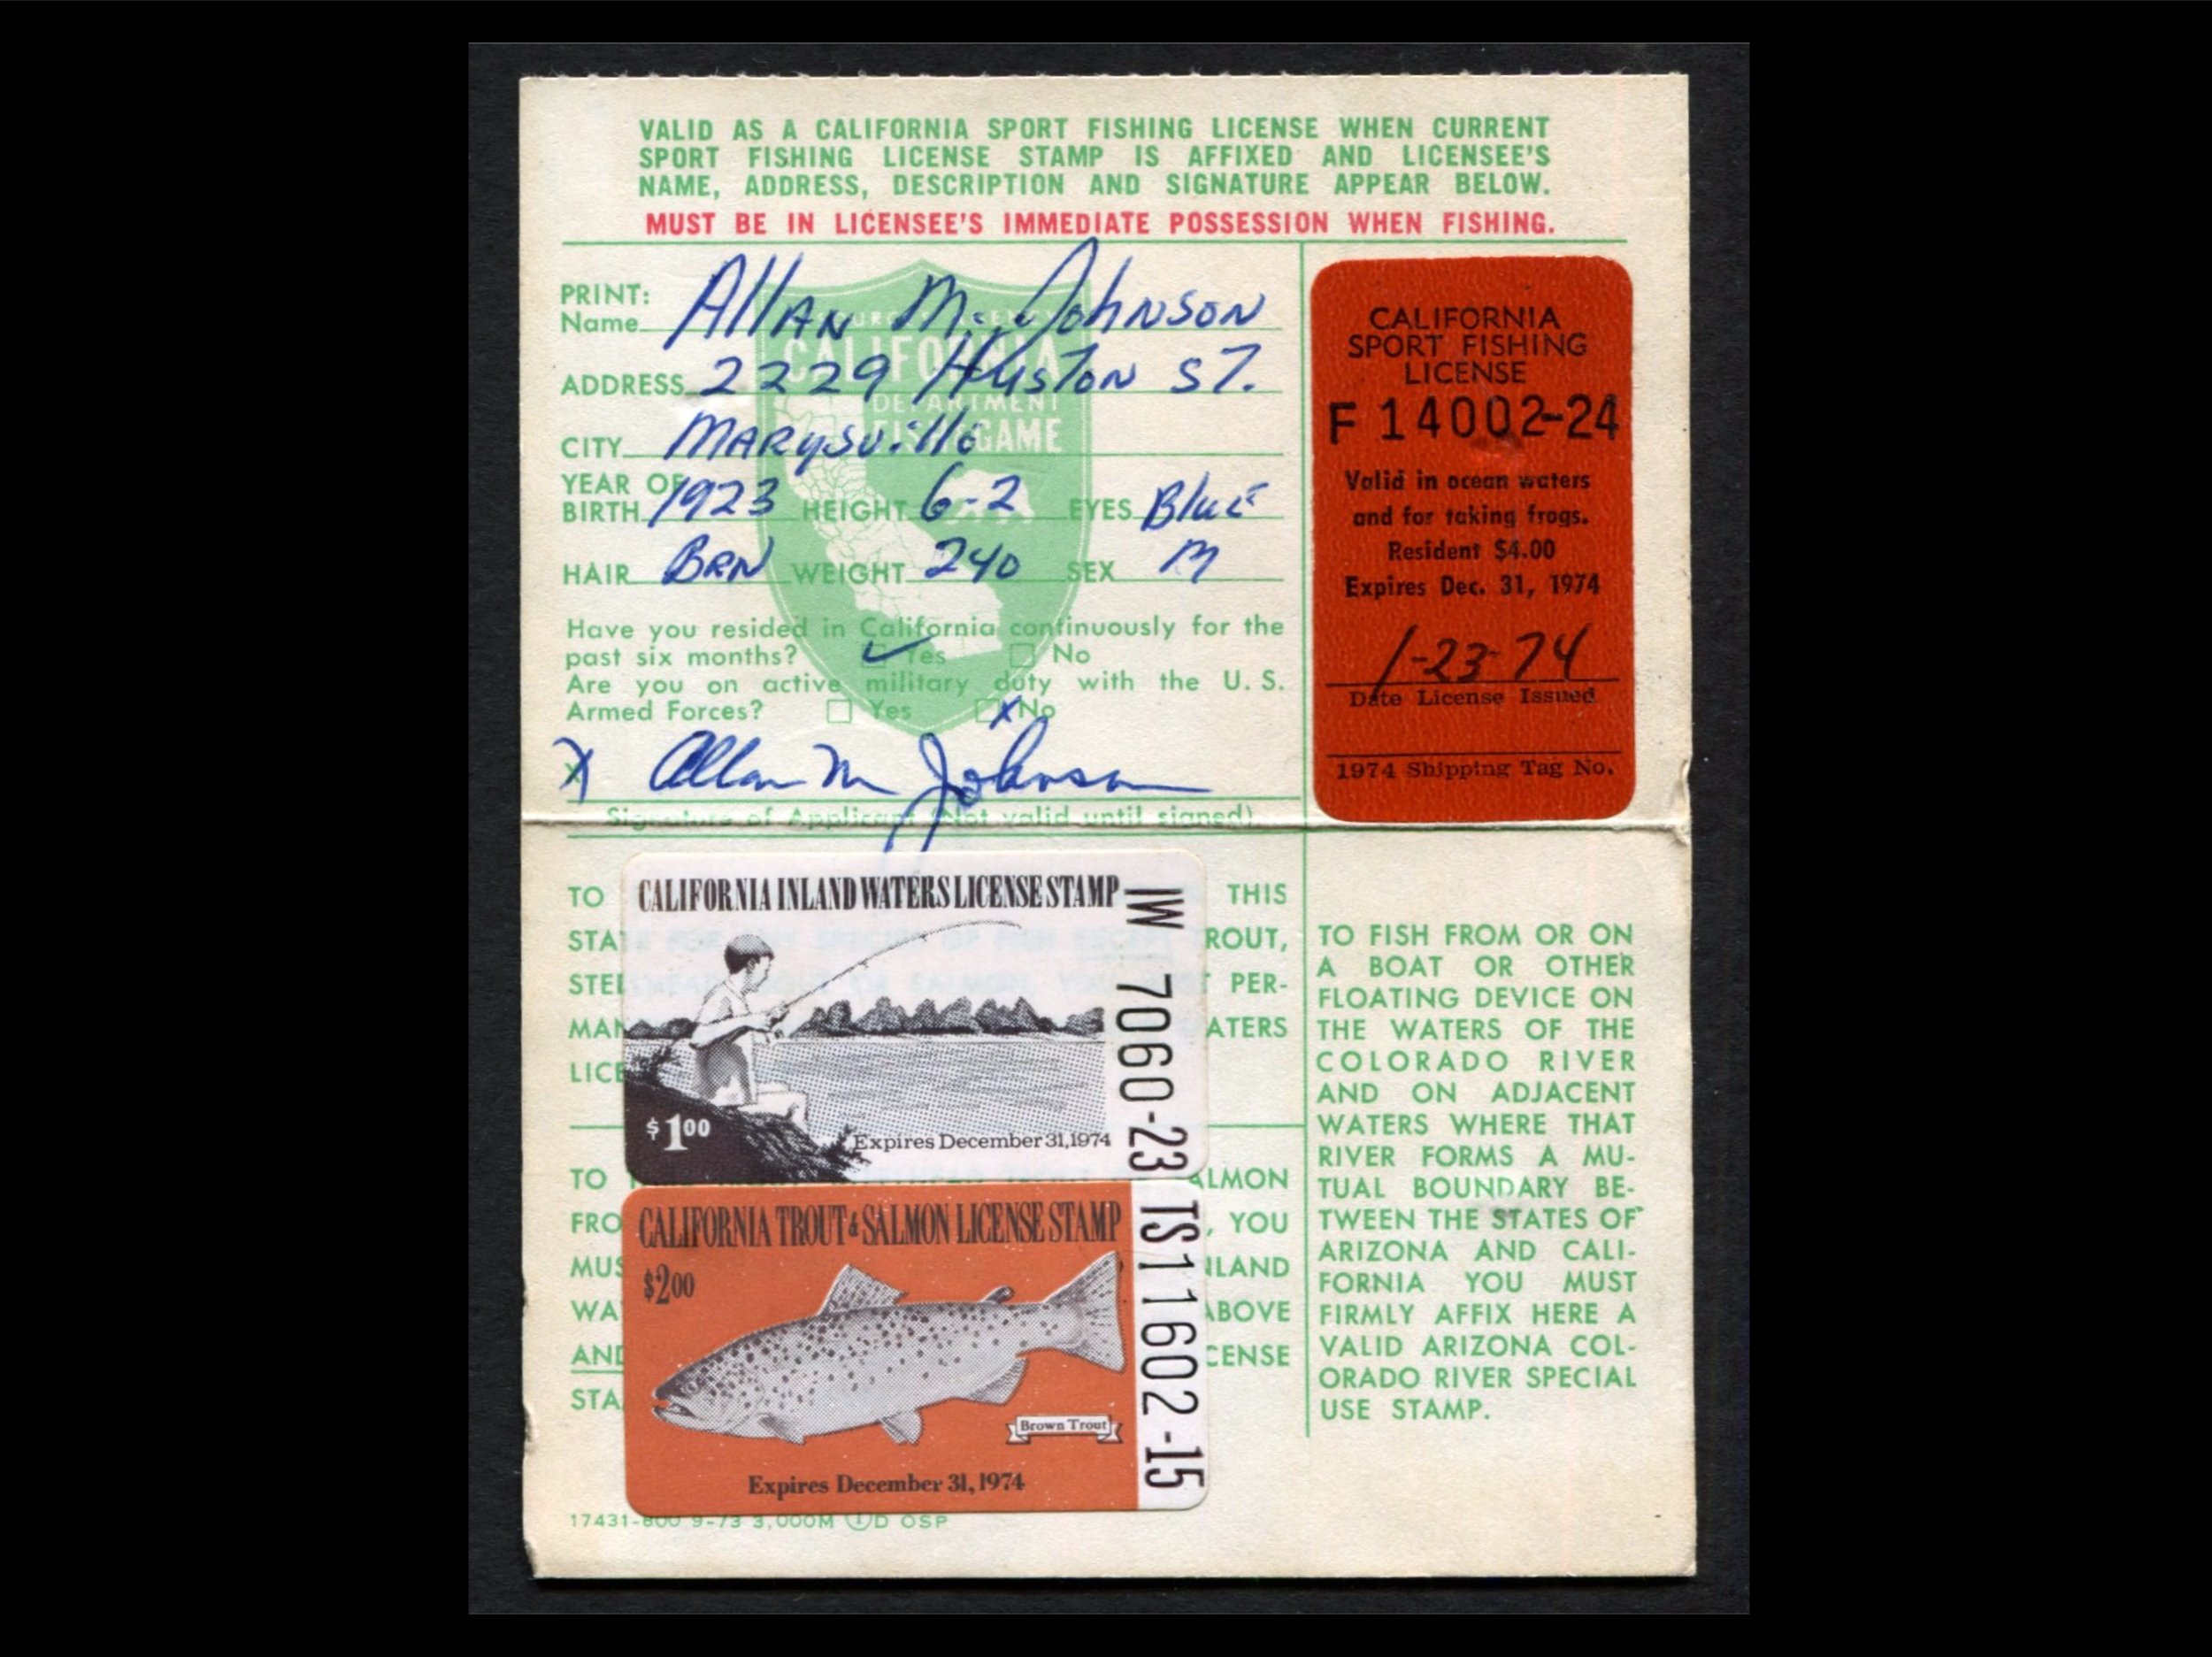 VALID AS A CALIFORNIA SPORT FISHING LICENSE WHEN CURRENT
SPORT FISHING LICENSE STAMP IS AFFIXED AND LICENSEE'S
NAME, ADDRESS, DESCRIPTION AND SIGNATURE APPEAR BELOW.
MUST BE IN LICENSEE'S IMMEDIATE POSSESSION WHEN FISHING.
PRINT:
Name Allan M. Johnson
ADDRESS 2229 Huston ST.
CITY Marysville
YEAR OF
BIRTH 1923 HEIGHT 6-2 EYES Blue
HAIR BRN WEIGHT 240 SEX M
CALIFORNIA
DEPARTMENT
FISH GAME
Have you resided in California continuously for the
past six months? ✓ Yes No
Are you on active military duty with the U. S.
Armed Forces? Yes X No
X Allan M Johnson
Signature of Applicant (Not valid until signed)
CALIFORNIA
SPORT FISHING
LICENSE
F 14002-24
Valid in ocean waters
and for taking frogs.
Resident $4.00
Expires Dec. 31, 1974
1-23-74
Date License Issued
1974 Shipping Tag No.
TO THIS
STA ROUT,
STEE PER-
MAN ATERS
LICE
CALIFORNIA INLAND WATERS LICENSE STAMP
$1.00
Expires December 31, 1974
IW 7060-23
TO ALMON
FRO , YOU
MUS NLAND
WA ABOVE
AND CENSE
STA
CALIFORNIA TROUT & SALMON LICENSE STAMP
$2.00
Brown Trout
Expires December 31, 1974
TS11602-15
TO FISH FROM OR ON
A BOAT OR OTHER
FLOATING DEVICE ON
THE WATERS OF THE
COLORADO RIVER
AND ON ADJACENT
WATERS WHERE THAT
RIVER FORMS A MU-
TUAL BOUNDARY BE-
TWEEN THE STATES OF
ARIZONA AND CALI-
FORNIA YOU MUST
FIRMLY AFFIX HERE A
VALID ARIZONA COL-
ORADO RIVER SPECIAL
USE STAMP.
17431-800 9-73 3,000M D OSP